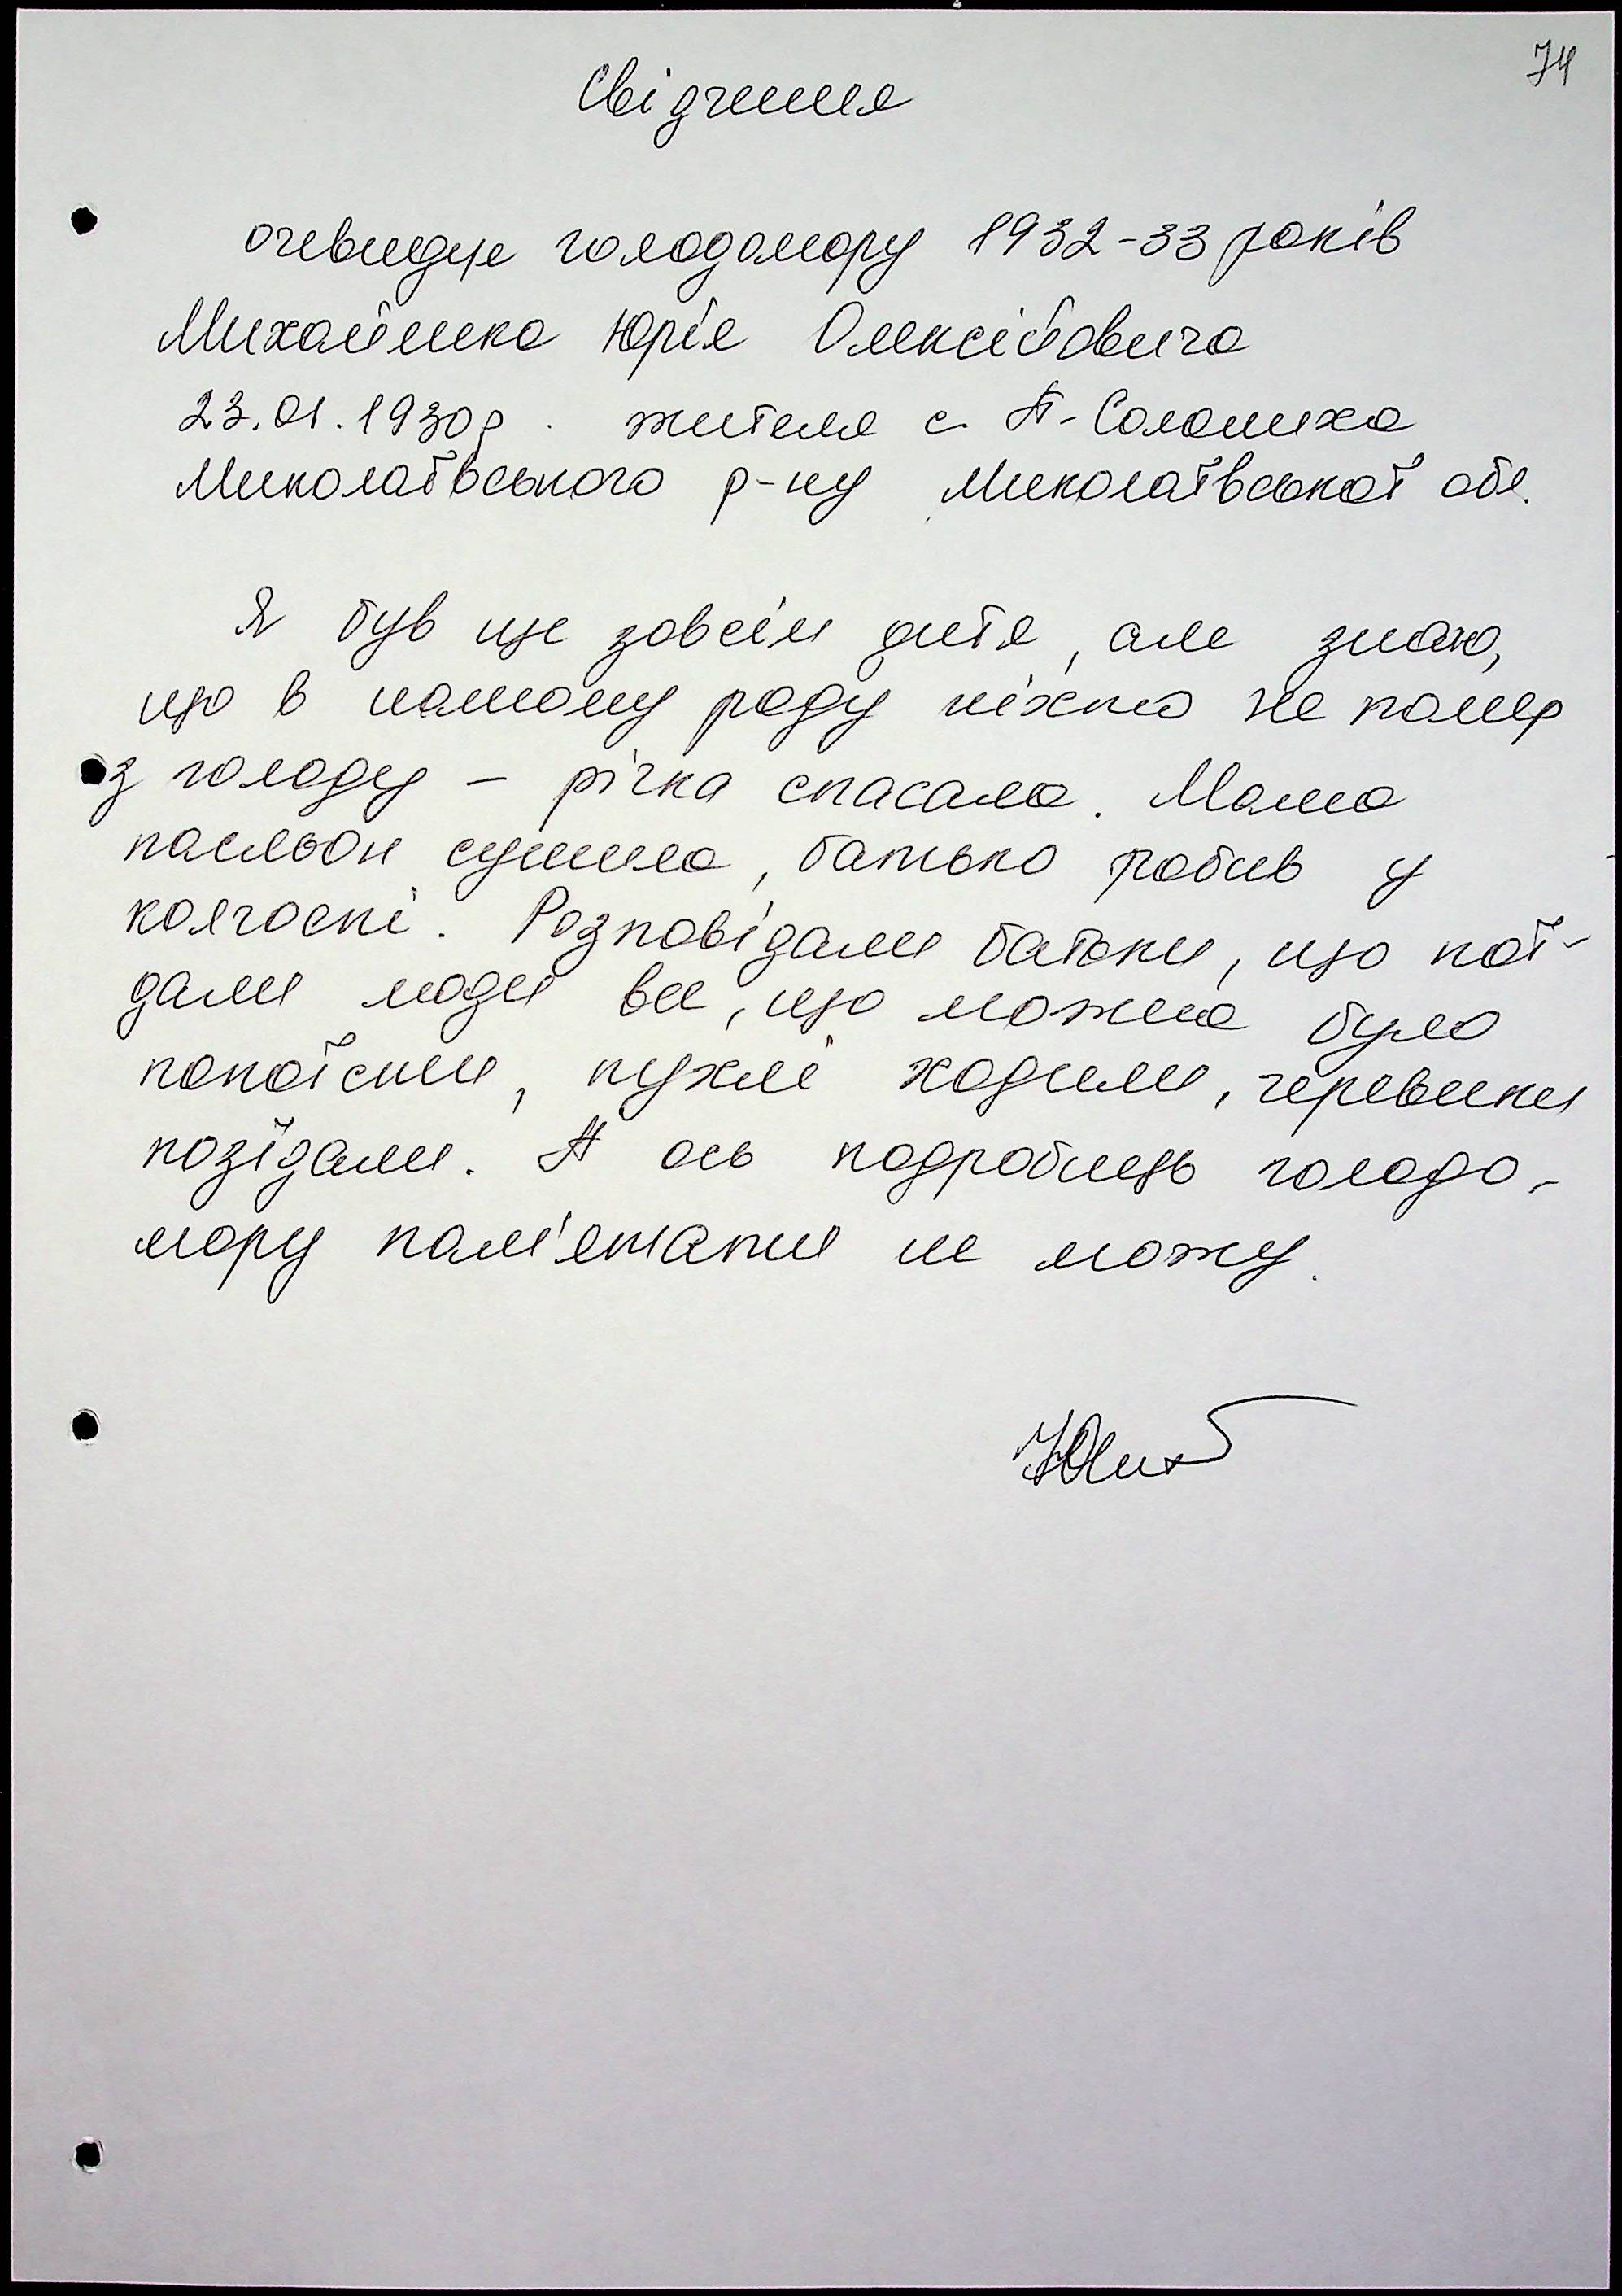 74
Свідчення
очевидця голодомору 1932-33 років
Юрія Олексійовича
23.01.1930р. жителя с. П-Солониха
Миколаївського р-ну Миколаївської обл.
Я був ще зовсім дитя, але знаю,
що в нашому роду ніхто не помер
з голоду – річка спасала. Мама
пасльон сушила, батько робив у
колгоспі. Розповідали батьки, що пої-
дали люди все, що можна було
попоїсти, пухлі ходили, черевики
позїдали. А ось подробиць голодо-
мору пам'ятати не можу.